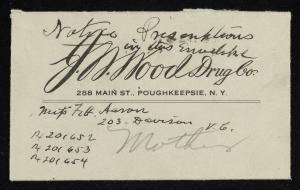 Notice Prescriptions
in this Envelope
J. W. Wood Drug Co.
288 MAIN ST., POUGHKEEPSIE, N. Y.
Aaron
203 - Davison
Mother
Rx 201652
Rx 201653
Rx 201654